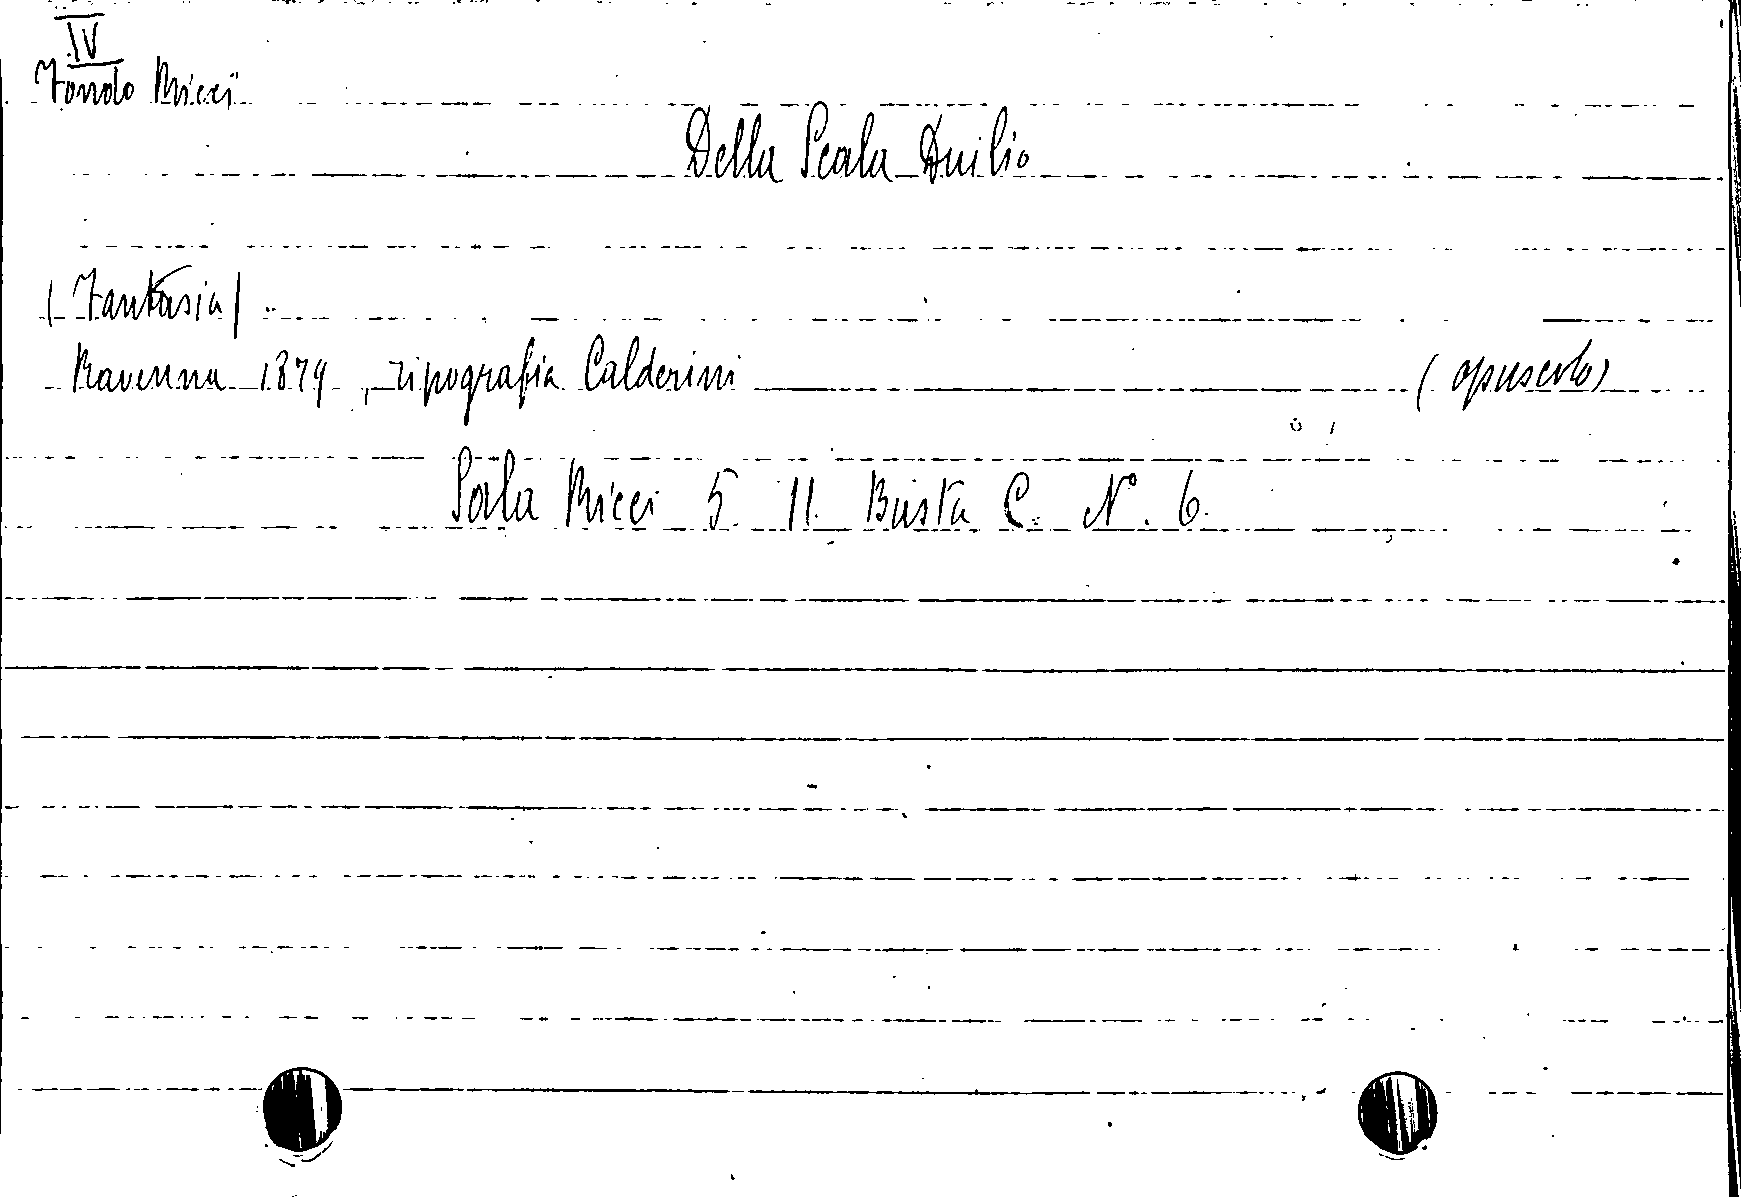 IV
Fondo Ricci
Della Scala Duilio
(Fantasia)
Ravenna 1879, Tipografia Calderini (opuscolo)
Sala Ricci 5. 11. Busta C. N°. 6.